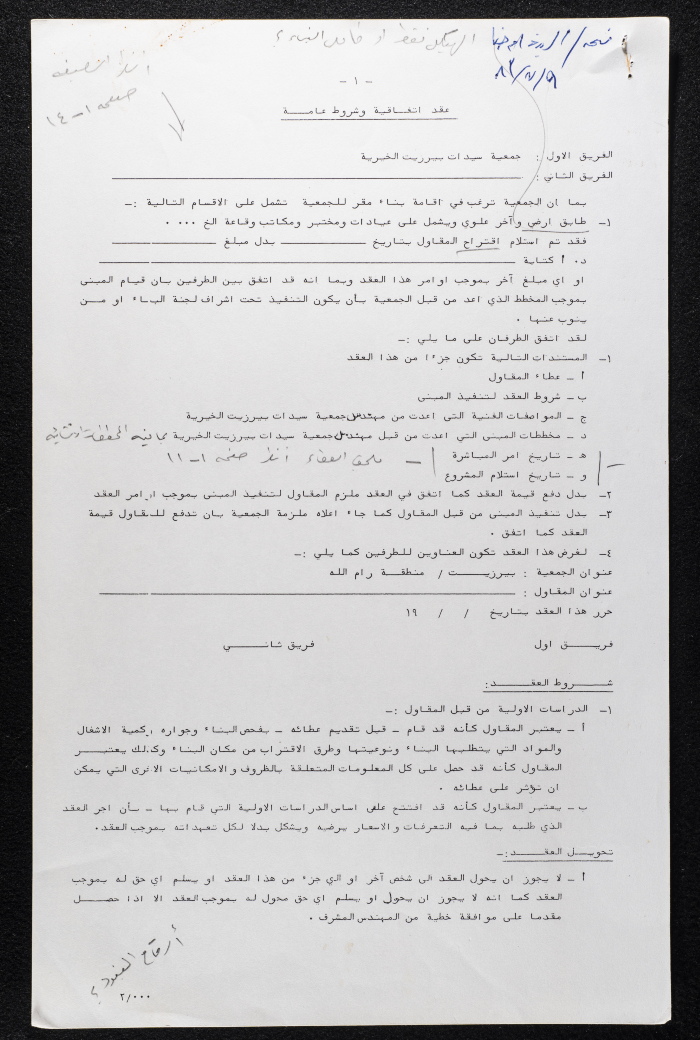 الهيكل فقط او
٩/٧/٨٣
صفحه ١-١٤
- ١ -
عقد اتفاقية وشروط عامـــة
الفريق الاول : جمعية سيدات بيرزيت الخيرية
الفريق الثاني :
بما ان الجمعية ترغب في اقامة بناء مقر للجمعية تشمل على الاقسام التالية :-
١- طابق ارضي وآخر علوي ويشمل على عيادات ومختبر ومكاتب وقاعة الخ ٠٠٠ .
فقد تم استلام اقتراح المقاول بتاريخ ــــــــ بدل مبلغ ــــــــ
د٠ أ كتابة
او اي مبلغ آخر بموجب اوامر هذا العقد وبما انه قد اتفق بين الطرفين بان قيام المبنى
بموجب المخطط الذي اعد من قبل الجمعية بأن يكون التنفيذ تحت اشراف لجنة البناء او مــن
ينوب عنها .
لقد اتفق الطرفان على ما يلي :-
١- المستندات التالية تكون جزءا من هذا العقد
أ - عطاء المقاول
ب - شروط العقد لتنفيذ المبنى
ج - المواصفات الفنية التي اعدت من مهندس جمعية سيدات بيرزيت الخيرية
د - مخططات المبنى التي اعدت من قبل مهندس جمعية سيدات بيرزيت الخيرية
ه - تاريخ امر المباشرة
- ملحق العطاء انظر صفحه ١-١١
و - تاريخ استلام المشروع
٢- بدل دفع قيمة العقد كما اتفق في العقد ملزم المقاول لتنفيذ المبنى بموجب اوامر العقد
٣- بدل تنفيذ المبنى من قبل المقاول كما جاء اعلاه ملزمة الجمعية بان تدفع للمقاول قيمة
العقد كما اتفق .
٤- لغرض هذا العقد تكون العناوين للطرفين كما يلي :-
عنوان الجمعية : بيرزيـــت / منطقـة رام الله
عنوان المقاول :
حرر هذا العقد بتاريخ / / ١٩
فريـــق اول فريق ثانـــي
شـــروط العقـــد :
١- الدراسات الاولية من قبل المقاول :-
أ - يعتبر المقاول كأنه قد قام - قبل تقديم عطائه - بفحص البناء وجواره وكمية الاشغال
والمواد التي يتطلبها البناء ونوعيتها وطرق الاقتراب من مكان البناء وكذلك يعتبـــر
المقاول كأنه قد حصل على كل المعلومات المتعلقة بالظروف والامكانيات الاخرى التي يمكن
ان تؤثر على عطائه .
ب - يعتبر المقاول كأنه قد افتتح على اساس الدراسات الاولية التي قام بها - بأن اجر العقد
الذي طلبه بما فيه التعرفات والاسعار يرضيه ويشكل بدلا لكل تعهداته بموجب العقد.
تحويــل العقـــد :-
أ - لا يجوز ان يحول العقد الى شخص آخر او الي جزء من هذا العقد او يسلم اي حق له بموجب
العقد كما انه لا يجوز ان يحول او يسلم اي حق محول له بموجب العقد الا اذا حصـــل
مقدما على موافقة خطية من المهندس المشرف .
أرقام البنود ؟
٢/٠٠٠